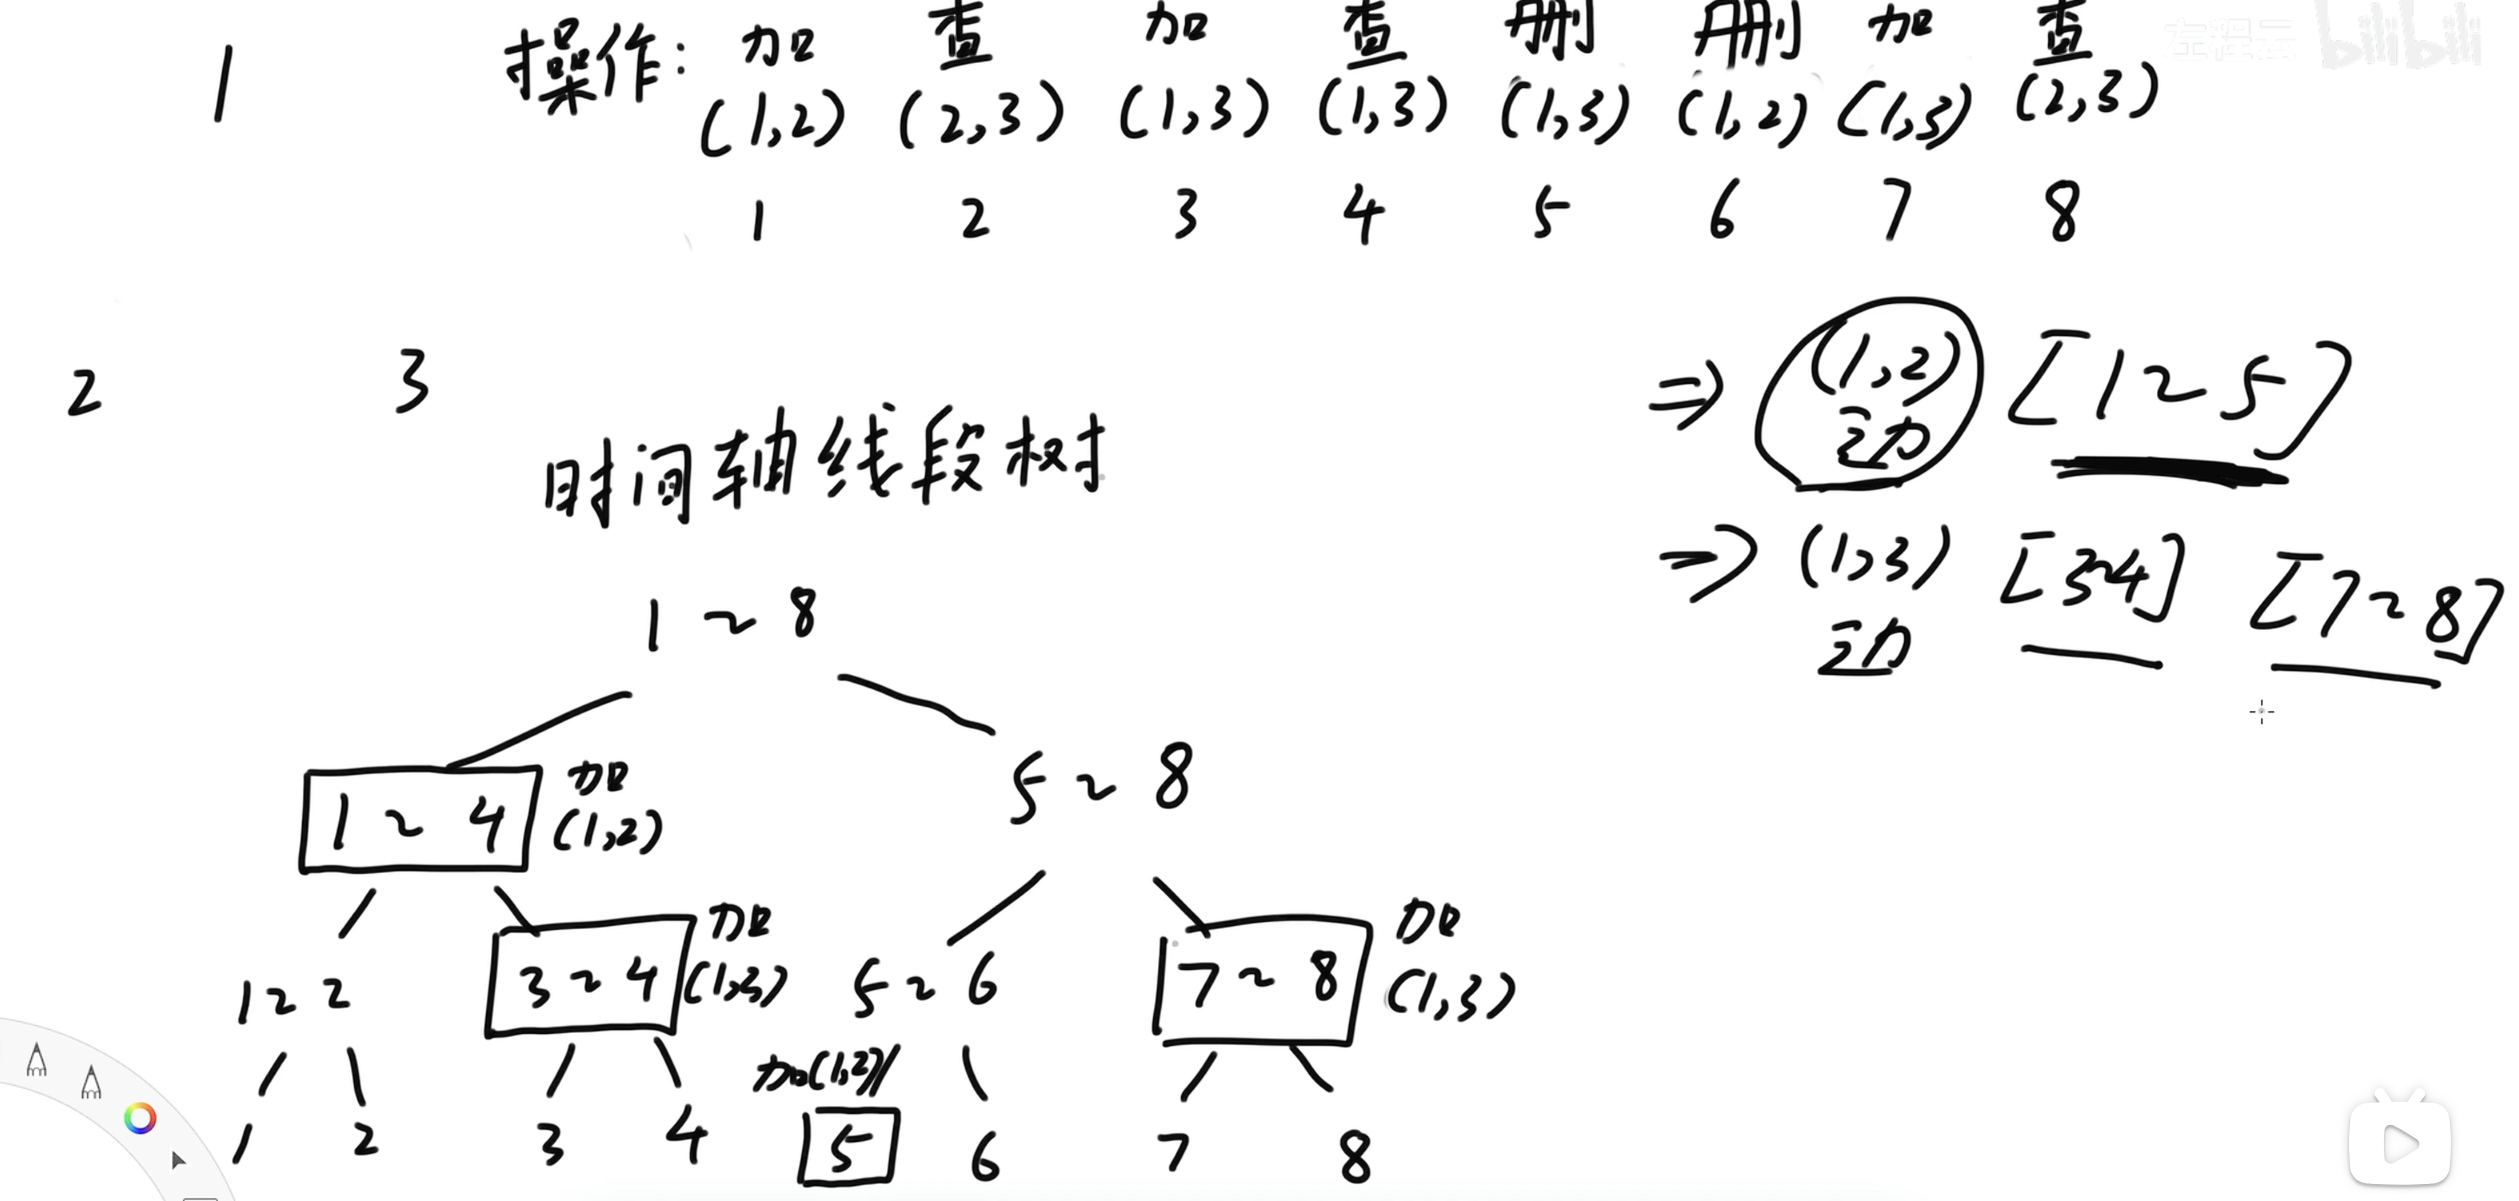 操作: 加 查 加 查 删 删 加 查
1 (1,2) (2,3) (1,3) (1,3) (1,3) (1,2) (1,3) (2,3)
1 2 3 4 5 6 7 8
左程云 bilibili
2 3
⇒ (1,2) [1~5]
动
时间轴线段树
⇒ (1,3) [3~4] [7~8]
动
1 ~ 8
1 ~ 4 加 5 ~ 8
(1,2)
1~2 3~4 加 5~6 7~8 加
(1,3) (1,3)
加(1,2)
1 2 3 4 5 6 7 8